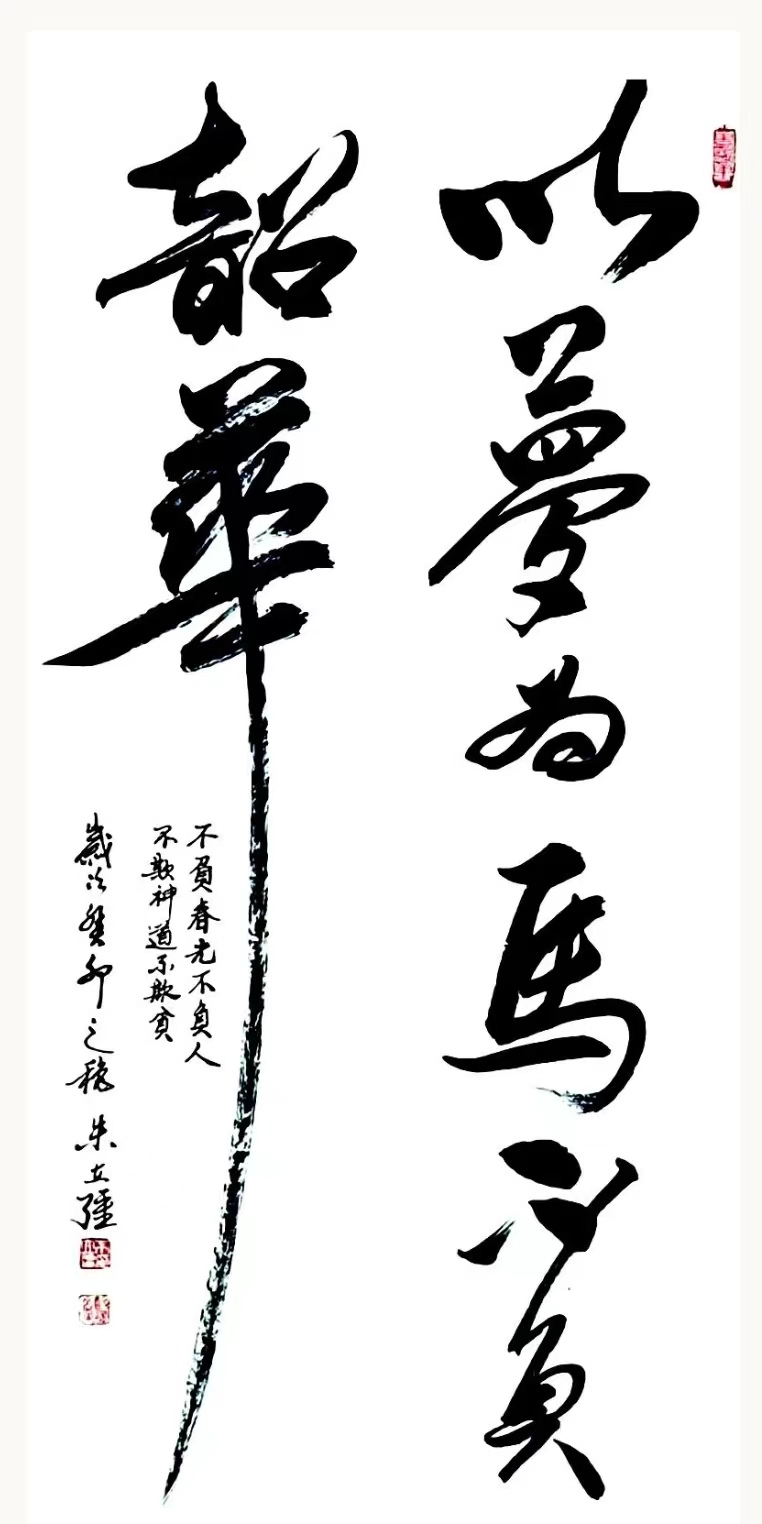 以夢为馬不負
韶華
不負春光不負人
不欺神道不欺貧
歲次癸卯之秋 朱立疆